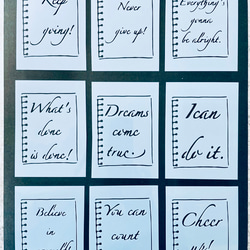 Keep
going!
Never
give up!
Everything's
gonna
be alright.
What's
done
is done!
Dreams
come
true.
I can
do it.
Believe
in
You can
count
Cheer
up!